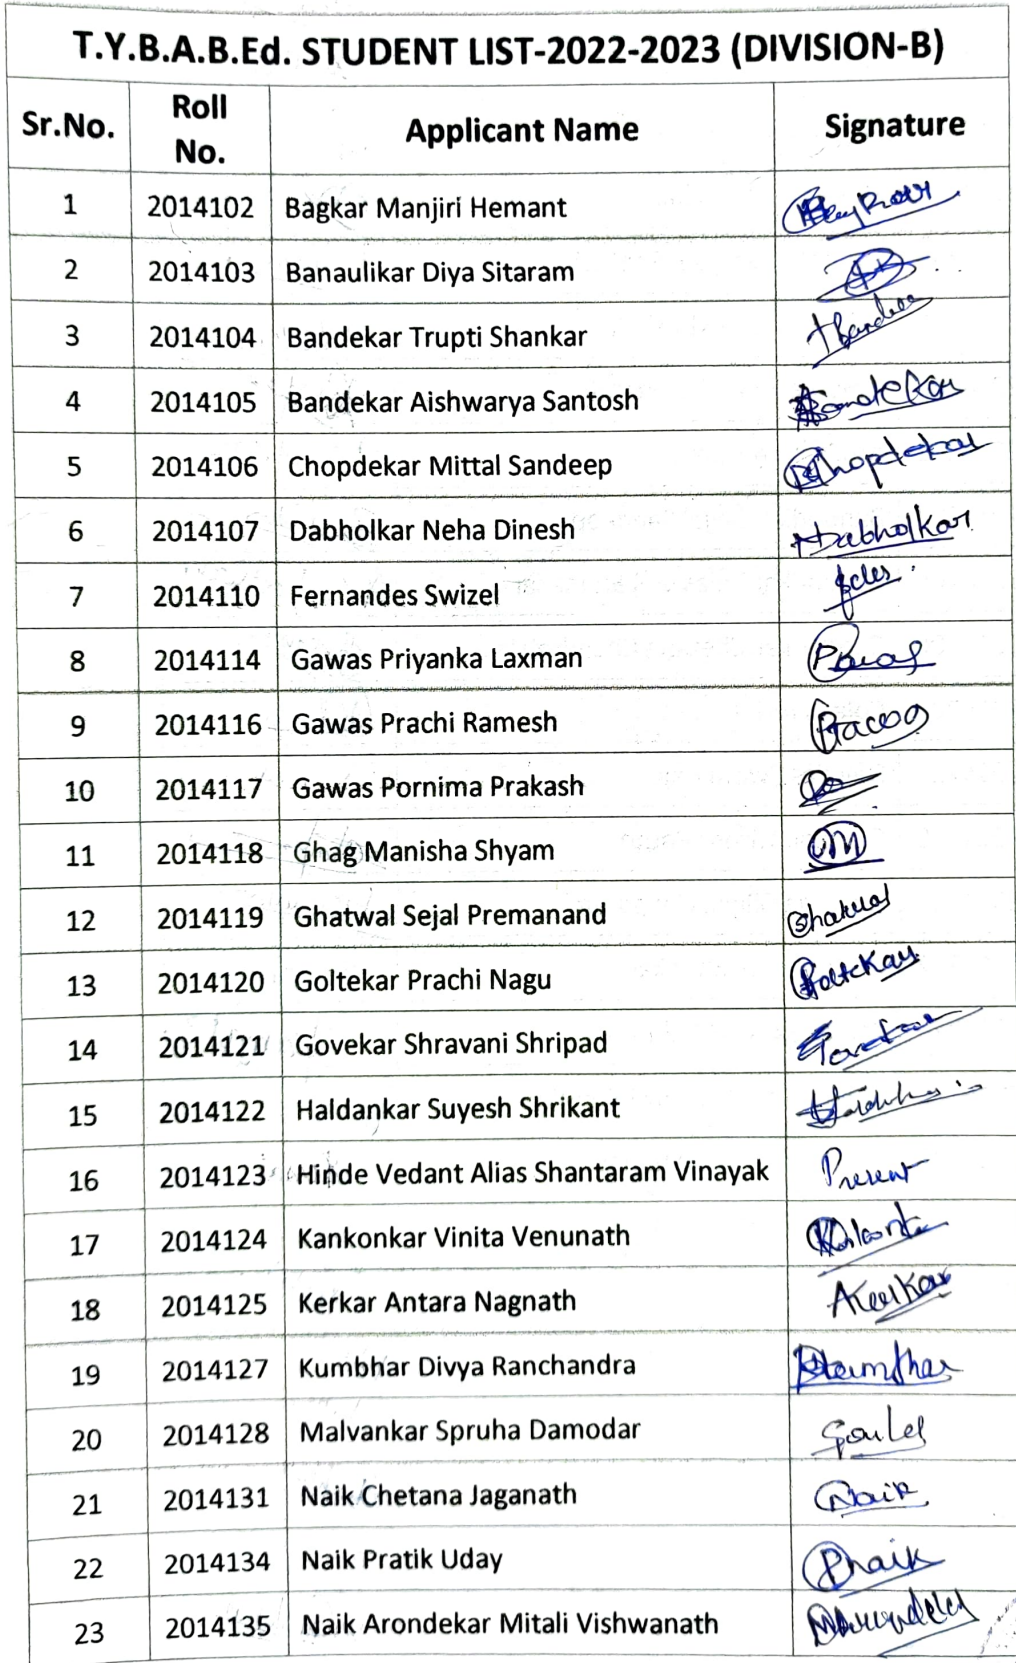 T.Y.B.A.B.Ed. STUDENT LIST-2022-2023 (DIVISION-B)
Sr.No. Roll No. Applicant Name Signature
1 2014102 Bagkar Manjiri Hemant
2 2014103 Banaulikar Diya Sitaram
3 2014104 Bandekar Trupti Shankar
4 2014105 Bandekar Aishwarya Santosh
5 2014106 Chopdekar Mittal Sandeep Chopdekar
6 2014107 Dabholkar Neha Dinesh Dabholkar
7 2014110 Fernandes Swizel
8 2014114 Gawas Priyanka Laxman
9 2014116 Gawas Prachi Ramesh
10 2014117 Gawas Pornima Prakash
11 2014118 Ghag Manisha Shyam
12 2014119 Ghatwal Sejal Premanand
13 2014120 Goltekar Prachi Nagu
14 2014121 Govekar Shravani Shripad
15 2014122 Haldankar Suyesh Shrikant
16 2014123 Hinde Vedant Alias Shantaram Vinayak Present
17 2014124 Kankonkar Vinita Venunath
18 2014125 Kerkar Antara Nagnath AKerkar
19 2014127 Kumbhar Divya Ranchandra
20 2014128 Malvankar Spruha Damodar
21 2014131 Naik Chetana Jaganath Naik
22 2014134 Naik Pratik Uday PNaik
23 2014135 Naik Arondekar Mitali Vishwanath